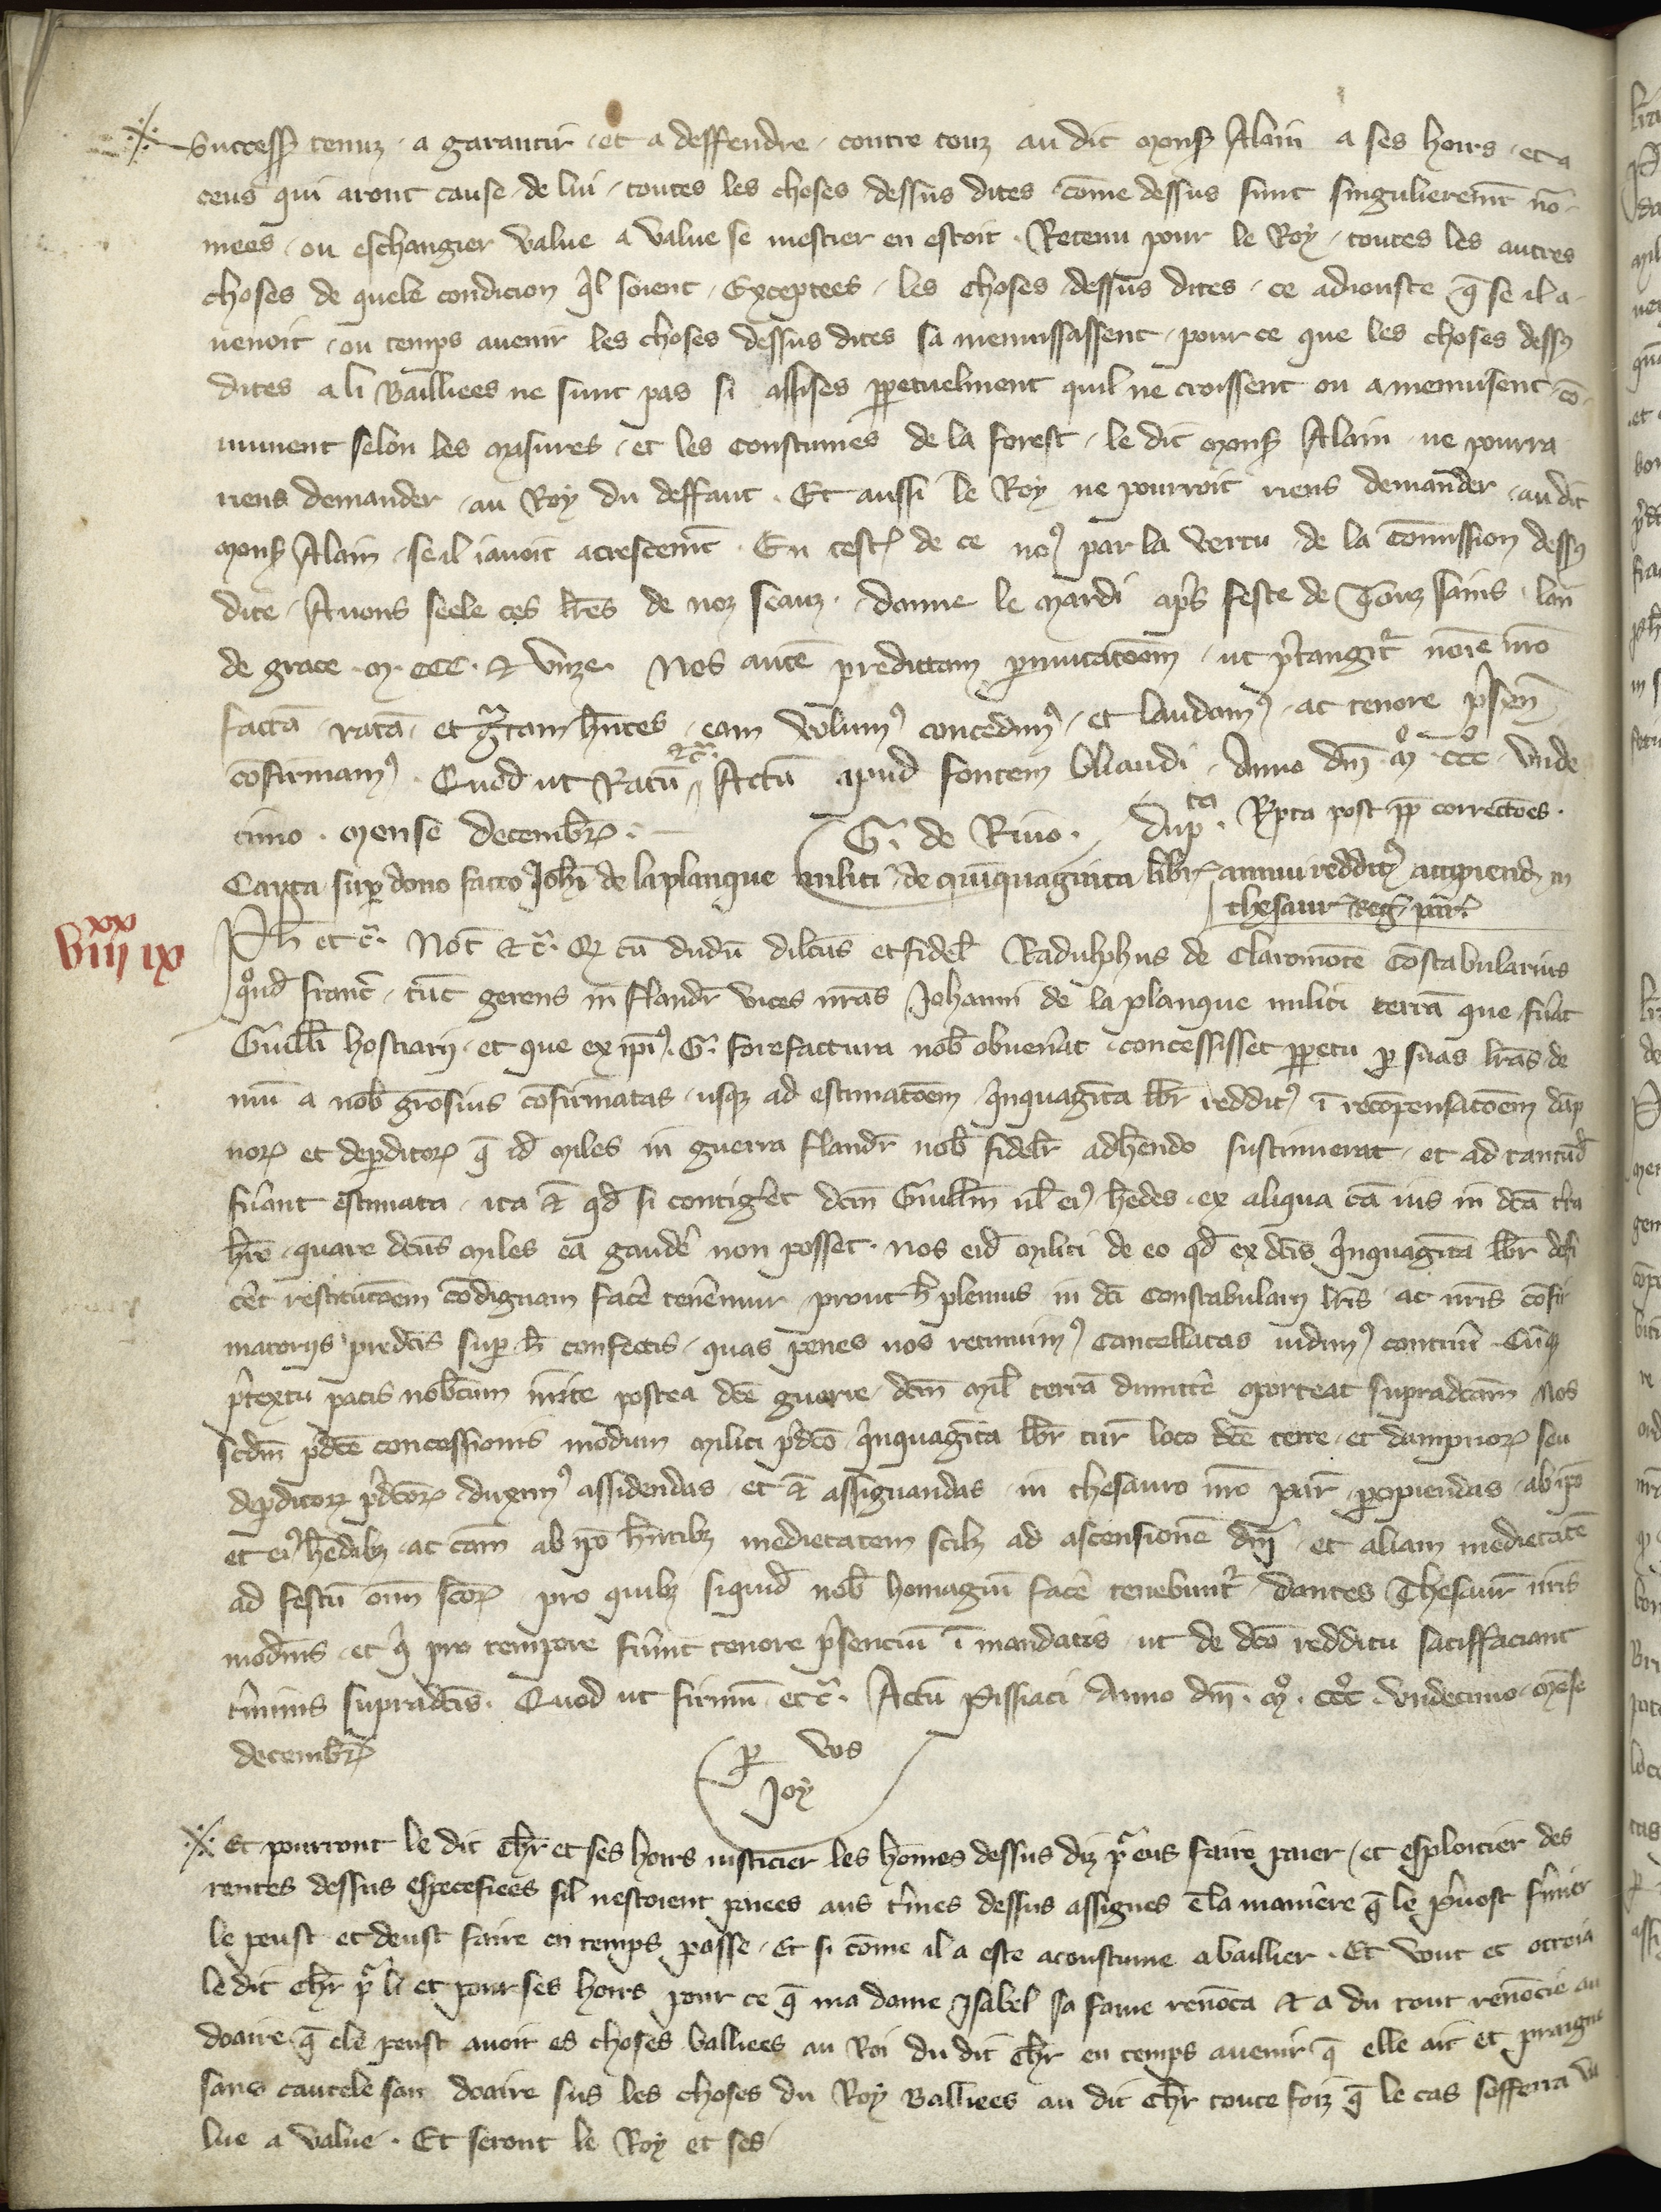 success tenuz a garantir et a deffendre contre touz au dit mons Alain a ses hoirs et a
ceus qui aront cause de lui toutes les choses dessus dites cōme dessus sunt singulieremt nō
mees ou eschangier value a value se mestier en estoit . Retenu pour le Roy toutes les autres
choses de quele condicion qil soient Exceptees les choses dessus dites ce adiouste q̄ se il a
uenoit ou temps auenir les choses dessus dites sa menuissassent pour ce que les choses dessꝰ
dites a li Bailliees ne sunt pas si assises ꝑpetuelment quil ne croissent ou amenuisent cō
munent selon les Mesures et les coustumes de la forest le dit mons Alain ne pourra
riens demander au Roy du deffaut . Et aussi le Roy ne pourroit riens demander au dit
mons Alain se il iauoit acrescemt . En tesꝉ de ce noꝰ par la vertu de la cōmission dessꝰ
dite Auons seele ces lr̄es de noz seauz . donne le mardi apr̄s feste de Touz sains lan
de grace . M . CCC . et vnze . Nos autē predictam ꝑmutacōem ut p̄tangitr nōie nr̄o
factā ratā et gratam hn̄tes eam volumꝰ concedimꝰ et laudamꝰ ac tenore p̄sen̄
cōfirmamꝰ . Quod ut Ratū etc̄ . Actū apud fontem bliaudi . Anno dn̄i Mº CCCº vnde
cimo . Mense decembrꝭ . G . de Riuo . Dupta . Rpta post ꝓp correctōes .
Carta suꝑ dono facto Joh̄i de laplanque militi de quinquaginta libr annui redditꝰ accipiend in
thesaur Reg par
VIIIxx IX
Ph̄ etc̄ . Not̄ etc̄ . Qꝫ cū dudū dilc̄us et fidel Radulphus de Claromōte Cōstabularius
quōd franc̄ tūc gerens in flandr vices nr̄as Johanni de la planque militi terrā que fūat
Guilli hostiarij et que ex ip̄iꝰ . G . forefactura nob obuenāt concessisset ꝑpetu ꝑ suas lr̄as de
mū a nob grosius cōfirmatas usqꝫ ad estimacōem quinquaginta lbr redditꝰ ī recōpensacōem dāp
norꝝ et deꝑditorꝝ q̄ id miles in guerra flandr nob fidelr adhendo sustinuerat et ad tantūd
fūant estimata ita et̄ qd si contigēt dcm̄ Guillm̄ ul eiꝰ hedes ex aliqua cā ius in dcā tr̄a
hr̄e quare dcūs miles eā gaudē non posset nos eid militi de eo qd ex dcīs quinquagintā lbr defi
cēt restitucōem cōdignam facē tenēmur prout h plenius in dcī constabularij lr̄is ac nr̄is cōfir
matorijs predcīs suꝑ h confectis quas penes nos retinuimꝰ cancellatas uidimꝰ contineri . Cūqꝫ
p̄textu pacis nobcum inite postea dcē guerre dcm̄ mil terrā dimittē oporteat supradcām Nos
scdm̄ p̄dcē concessionis modum militi p̄dcō quinquagintā lbr tur loco dcē terre et dampnorꝝ seu
deꝑditorꝝ p̄dcōrꝝ duximꝰ assidendas et et̄ assignandas in thesauro nr̄o par ꝑcipiendas ab ip̄o
et eiꝰ hedibꝫ ac cām ab ip̄o hn̄tibꝫ medietatem scilꝫ ad ascensionē dn̄i et aliam medietatē
ad festū om̄ scōrꝝ pro quibꝫ siquid nob homagiū facē tenebuntr dantes Thesaur nr̄is
modn̄is et qui pro tempore fūint tenore p̄sencium ī mandatis ut de dcō redditu satisfaciant
tm̄inis supradcīs . Quod ut firmū etc̄ . Actū Pissiaci Anno dn̄i . Mº . CCCº . vndecimo mēse
decembrꝭ
ꝑ vos
Joy
Et pourront le dit chr et ses hoirs iusticier les hōmes dessus diz pr eus faire paier et esploitier des
rentes dessus especefiees sil nestoient paiees aus tm̄es dessus assignes ē la maniere q̄ le p̄uost fm̄ier
le peust et deust faire en temps passe . Et si cōme il a este acoustume a baillier . Et vout et otroia
le dit chr pr li et pour ses hoirs pour ce q̄ ma dame ysabel sa fame renōca et a du tout renōcie au
doaire q̄ ele peust auoir es choses balliees au Roi du dit chr en temps auenir q̄ elle ait et praigne
sans cautele son doaire sus les choses du Roy Balliees au dit chr toute foiz q̄ le cas soffera va
lue a value . Et seront le Roy et ses